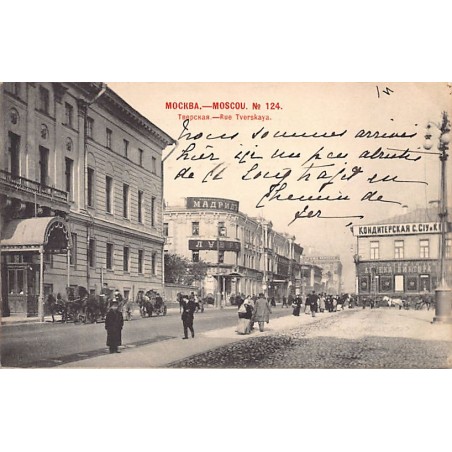 МОСКВА.—MOSCOU. № 124.
Тверская.—Rue Tverskaya.
Nous sommes arrivés
hier ici un peu abrutis
de ce long trajet en
Chemin de
fer
МАДРИДЪ
ЛУ
КОНДИТЕРСКАЯ С. СІУ и Кº